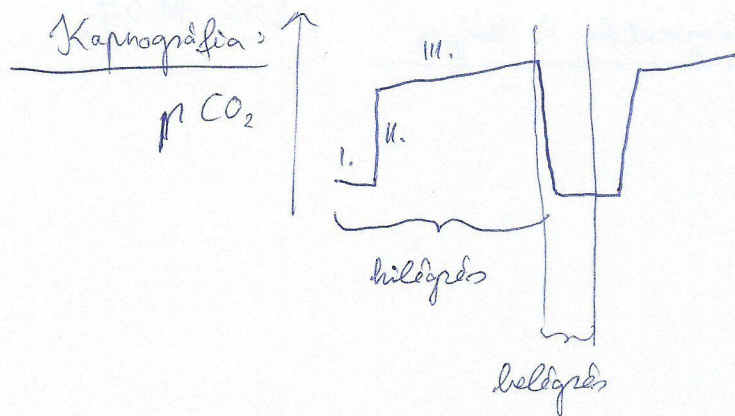 Kapnográfia:
pCO₂
I.
II.
III.
kilégzés
belégzés